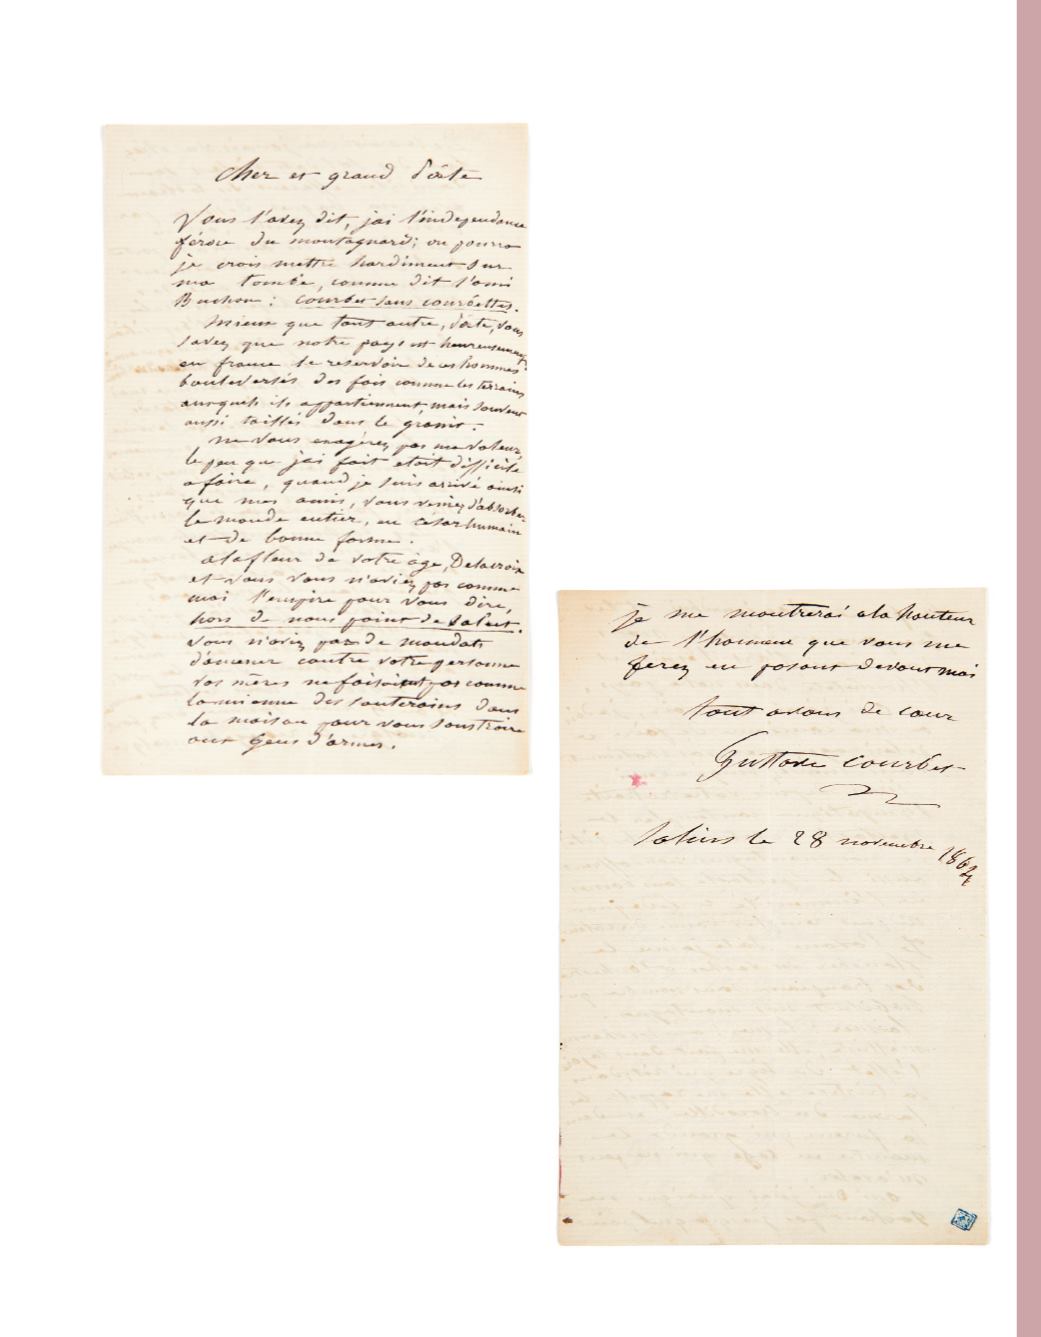 Cher et grand Poëte
Vous l'avez dit, jai l'independance
féroce du montagnard; on pourra
je crois mettre hardiment sur
ma tombe, comme dit l'ami
Buchon: Courbet sans courbettes.
Mieux que tout autre, Poëte, vous
savez que notre pays est heureusement
en france le reservoir de ces hommes
bouleversés des fois comme les terrains
auxquels ils appartiennent, mais souvent
aussi taillés dans le granit.
Ne vous exagérez pas ma valeur,
le peu que jai fait etait difficile
a faire, quand je suis arrivé ainsi
que mes amis, vous veniez d'absorber
le monde entier, en cesar humain
et de bonne forme.
a la fleur de votre âge, Delacroix
et vous vous n'aviez pas comme
moi l'empire pour vous dire,
hors de nous point de salut.
vous n'aviez pas de mandats
d'amener contre votre personne
vos mères ne faisaient pas comme
la mienne des souterrains dans
la maison pour vous soustraire
aux gens d'armes.
je me montrerai a la hauteur
de l'honneur que vous me
ferez en posant devant moi
tout avous de cœur
Gustave Courbet
Salins le 28 novembre 1864